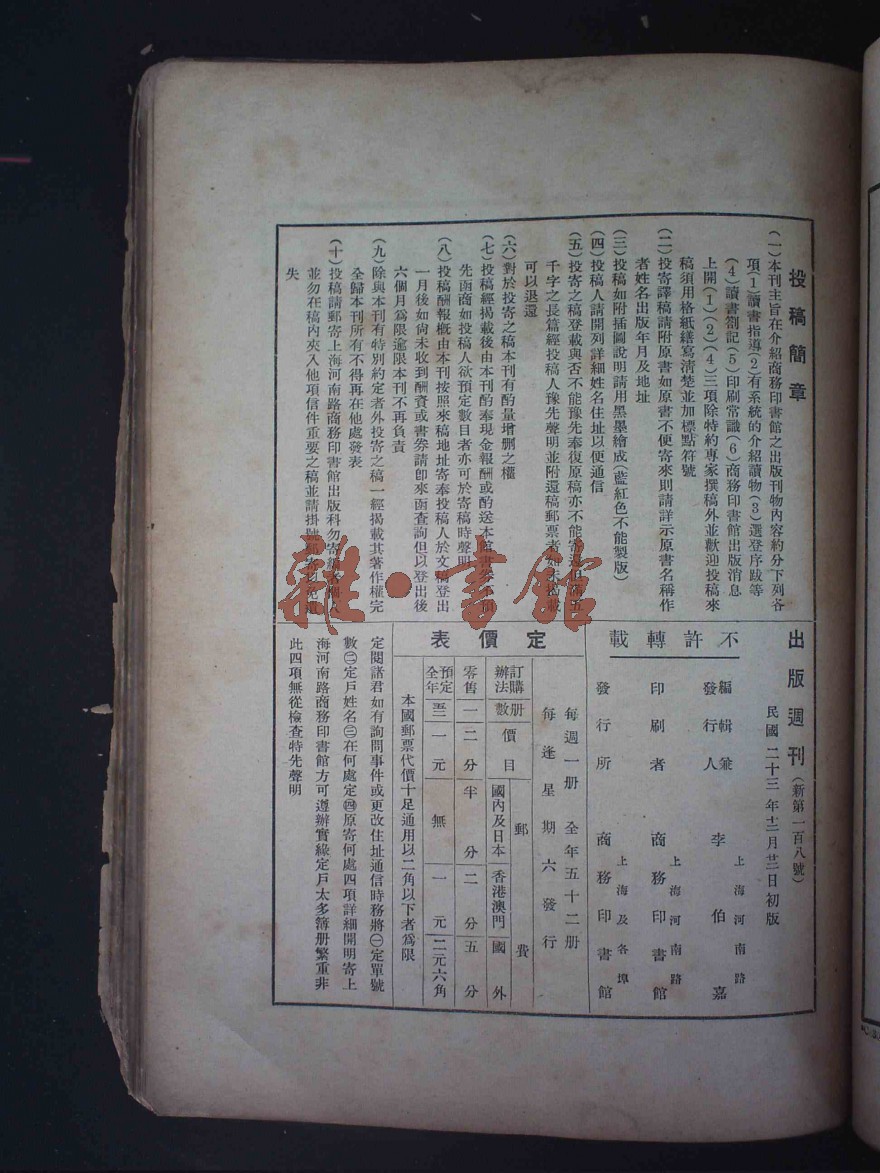 投稿簡章
(一)本刊主旨在介紹商務印書館之出版刊物內容約分下列各
項(1)讀書指導(2)有系統的介紹讀物(3)選登序跋等
(4)讀書劄記(5)印刷常識(6)商務印書館出版消息
上開(1)(2)(4)三項除特約專家撰稿外並歡迎投稿來
稿須用格紙繕寫清楚並加標點符號
(二)投寄譯稿請附原書如原書不便寄來則請詳示原書名稱作
者姓名出版年月及地址
(三)投稿如附插圖說明請用黑墨繪成(藍紅色不能製版)
(四)投稿人請開列詳細姓名住址以便通信
(五)投寄之稿登載與否不能豫先奉復原稿亦不能寄還但滿五
千字之長篇經投稿人豫先聲明並附還稿郵票者如未揭載
可以退還
(六)對於投寄之稿本刊有酌量增刪之權
(七)投稿經揭載後由本刊酌奉現金報酬或酌送本館書券不預
先函商如投稿人欲預定數目者亦可於寄稿時聲明
(八)投稿酬報槪由本刊按照來稿地址寄奉投稿人於文稿登出
一月後如尙未收到酬資或書券請卽來函查詢但以登出後
六個月爲限逾限本刊不再負責
(九)除與本刊有特別約定者外投寄之稿一經揭載其著作權完
全歸本刊所有不得再在他處發表
(十)投稿請郵寄上海河南路商務印書館出版科勿寄
並勿在稿內夾入他項信件重要之稿並請掛號
失
出版週刊(新第一百八號)
民國二十三年十二月廿二日初版
不許轉載
編輯兼發行人 李伯嘉 上海河南路
印刷者 商務印書館 上海河南路
發行所 商務印書館 上海及各埠
定價表
每週一册 全年五十二册
每逢星期六發行
訂購辦法 册數 價目 郵費 國內及日本 香港澳門 國外
零售 一 二分 半分 二分 五分
預定全年 五二 一元 無 一元 二元六角
本國郵票代價十足通用以二角以下者爲限
定閱諸君如有詢問事件或更改住址通信時務將㊀定單號
數㊁定戶姓名㊂在何處定㊃原寄何處四項詳細開明寄上
海河南路商務印書館方可遵辦實緣定戶太多簿册繁重非
此四項無從檢查特先聲明
雜·書館